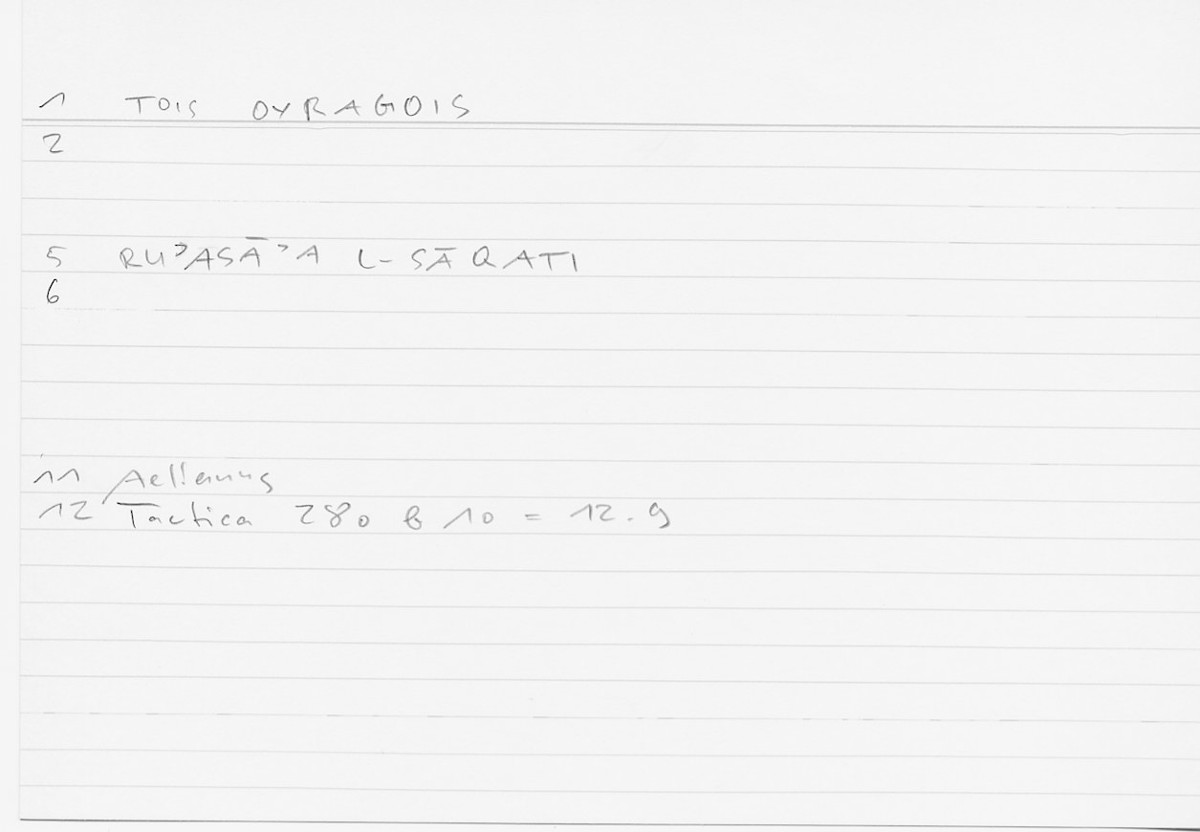 1 TOIS OYRAGOIS
2
5 RUʾASĀʾA L-SĀQATI
6
11 Aelianus
12 Tactica 280 b 10 = 12.9